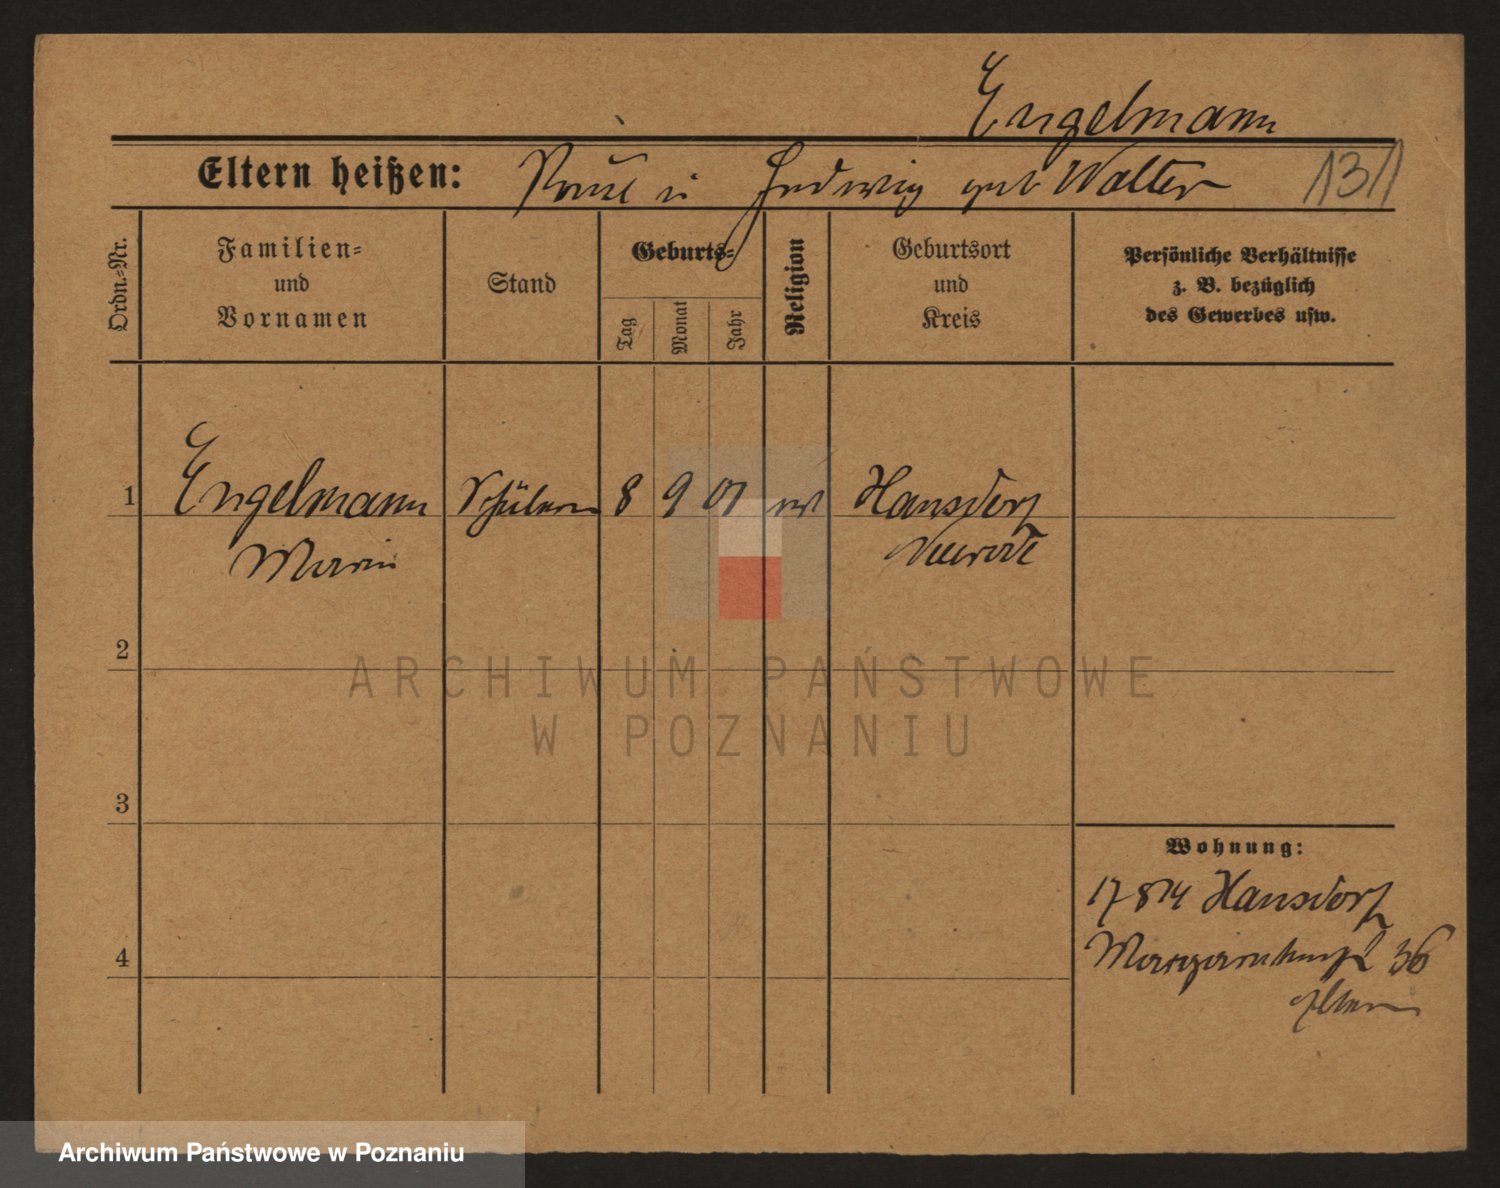 Engelmann
Eltern heißen: Paul u Hedwig geb Walter 1311
Ordn.-Nr.
Familien- und Vornamen
Stand
Geburts-
Tag
Monat
Jahr
Religion
Geburtsort und Kreis
Persönliche Verhältnisse
z. B. bezüglich
des Gewerbes usw.
1 Engelmann Schülerin 8 9 01 Hansdorf
Neurode
2
3
4
Wohnung:
17 8 14 Hansdorf
36
Eltern
ARCHIWUM PAŃSTWOWE
W POZNANIU
Archiwum Państwowe w Poznaniu